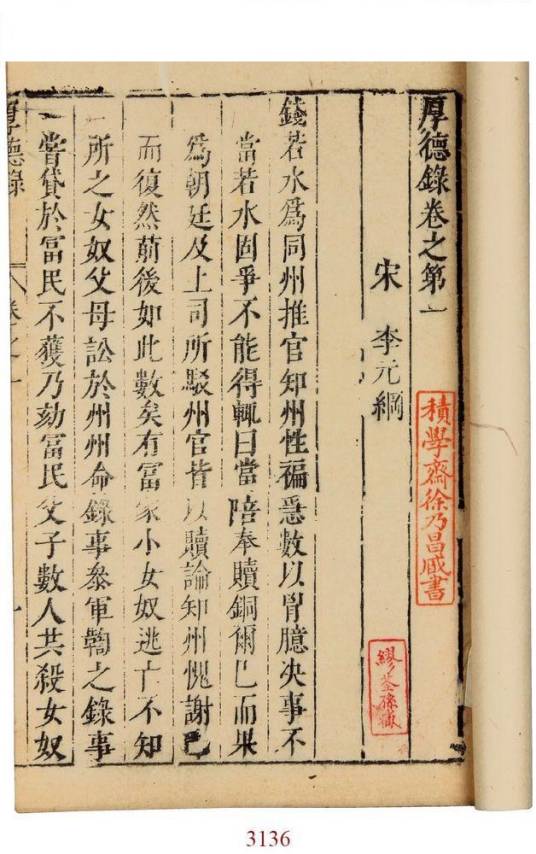 厚德錄卷之第一
宋 李元綱
積學齋徐乃昌臧書
繆荃孫藏
錢若水爲同州推官知州性褊急數以胷臆决事不
當若水固爭不能得輒曰當陪奉贖銅爾已而果
爲朝廷及上司所駁州官皆以贖論知州愧謝已
而復然前後如此數矣有富家小女奴逃亡不知
所之女奴父母訟於州州命錄事叅軍鞫之錄事
嘗貸於富民不獲乃劾富民父子數人共殺女奴
厚德錄
卷之一
一
3136